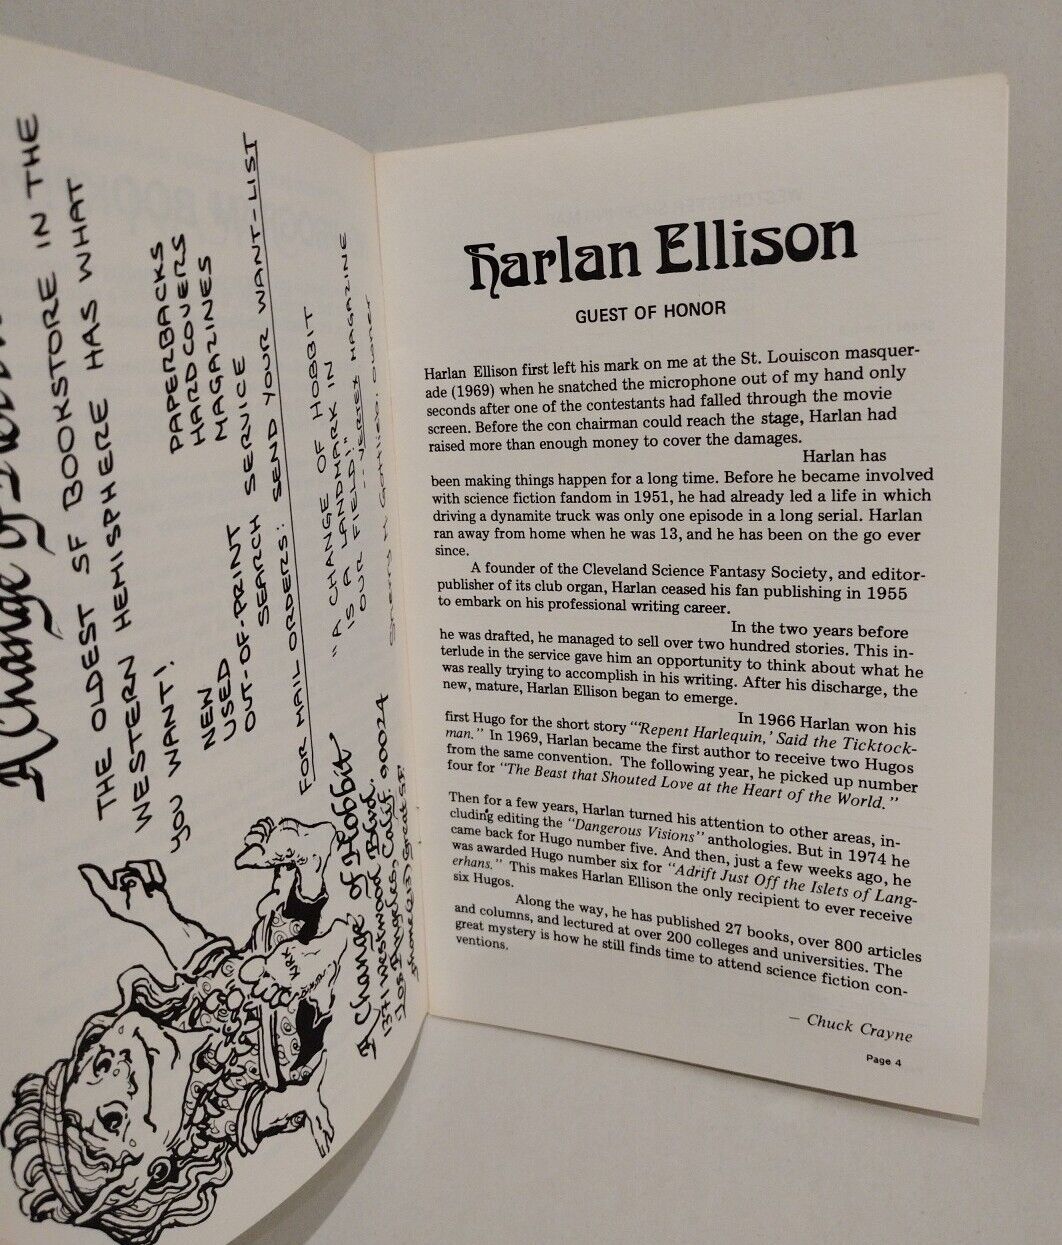 A Change of
THE OLDEST SF BOOKSTORE IN THE
WESTERN HEMISPHERE HAS WHAT
YOU WANT!
PAPERBACKS
HARDCOVERS
MAGAZINES
NEW
USED
OUT-OF-PRINT
SEARCH SERVICE
FOR MAIL ORDERS: SEND YOUR WANT-LIST
"A CHANGE OF HOBBIT
IS A LANDMARK IN
OUR FIELD!"
--VERTEX MAGAZINE
A Change of Hobbit
1371 Westwood Blvd.
Los Angeles, Calif. 90024
Harlan Ellison
GUEST OF HONOR
Harlan Ellison first left his mark on me at the St. Louiscon masquer-
ade (1969) when he snatched the microphone out of my hand only
seconds after one of the contestants had falled through the movie
screen. Before the con chairman could reach the stage, Harlan had
raised more than enough money to cover the damages.
Harlan has
been making things happen for a long time. Before he became involved
with science fiction fandom in 1951, he had already led a life in which
driving a dynamite truck was only one episode in a long serial. Harlan
ran away from home when he was 13, and he has been on the go ever
since.
A founder of the Cleveland Science Fantasy Society, and editor-
publisher of its club organ, Harlan ceased his fan publishing in 1955
to embark on his professional writing career.
In the two years before
he was drafted, he managed to sell over two hundred stories. This in-
terlude in the service gave him an opportunity to think about what he
was really trying to accomplish in his writing. After his discharge, the
new, mature, Harlan Ellison began to emerge.
In 1966 Harlan won his
first Hugo for the short story "'Repent Harlequin,' Said the Ticktock-
man." In 1969, Harlan became the first author to receive two Hugos
from the same convention. The following year, he picked up number
four for "The Beast that Shouted Love at the Heart of the World."
Then for a few years, Harlan turned his attention to other areas, in-
cluding editing the "Dangerous Visions" anthologies. But in 1974 he
came back for Hugo number five. And then, just a few weeks ago, he
was awarded Hugo number six for "Adrift Just Off the Islets of Lang-
erhans." This makes Harlan Ellison the only recipient to ever receive
six Hugos.
Along the way, he has published 27 books, over 800 articles
and columns, and lectured at over 200 colleges and universities. The
great mystery is how he still finds time to attend science fiction con-
ventions.
— Chuck Crayne
Page 4